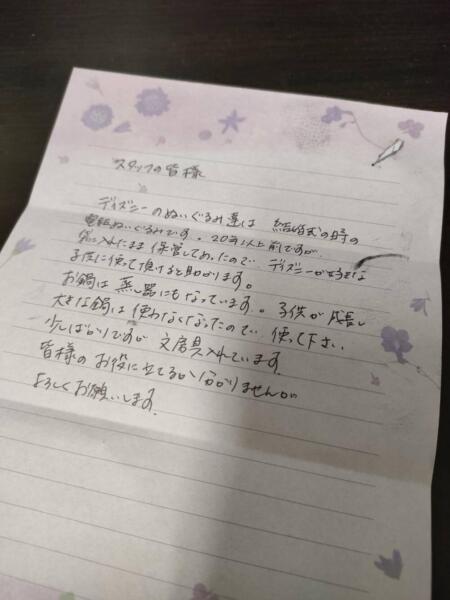 スタッフの皆様
ディズニーのぬいぐるみ達は 結婚式の時の
電報ぬいぐるみです。20年以上前ですが
袋に入れたまま保管してあったので ディズニーが好きな
子供に使って頂けると助かります。
お鍋は 蒸し器にもなっています。子供が成長し
大きな鍋は使わなくなったので 使って下さい。
少しばかりですが 文房具入れています。
皆様のお役に立てるか分かりませんが
よろしくお願いします。